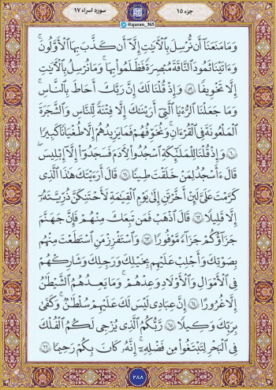 جزء ۱۵
@quran_365
سوره اسراء ۱۷
وَمَا مَنَعَنَا أَن نُّرْسِلَ بِالْآيَاتِ إِلَّا أَن كَذَّبَ بِهَا الْأَوَّلُونَ ۚ
وَءَاتَيْنَا ثَمُودَ النَّاقَةَ مُبْصِرَةً فَظَلَمُوا بِهَا ۚ وَمَا نُرْسِلُ بِالْآيَاتِ
إِلَّا تَخْوِيفًا ۝ وَإِذْ قُلْنَا لَكَ إِنَّ رَبَّكَ أَحَاطَ بِالنَّاسِ ۚ
وَمَا جَعَلْنَا الرُّءْيَا الَّتِي أَرَيْنَاكَ إِلَّا فِتْنَةً لِّلنَّاسِ وَالشَّجَرَةَ
الْمَلْعُونَةَ فِي الْقُرْءَانِ ۚ وَنُخَوِّفُهُمْ فَمَا يَزِيدُهُمْ إِلَّا طُغْيَانًا كَبِيرًا
۝ وَإِذْ قُلْنَا لِلْمَلَائِكَةِ اسْجُدُوا لِءَادَمَ فَسَجَدُوا إِلَّا إِبْلِيسَ
قَالَ ءَأَسْجُدُ لِمَنْ خَلَقْتَ طِينًا ۝ قَالَ أَرَءَيْتَكَ هَٰذَا الَّذِي
كَرَّمْتَ عَلَيَّ لَئِنْ أَخَّرْتَنِ إِلَىٰ يَوْمِ الْقِيَامَةِ لَأَحْتَنِكَنَّ ذُرِّيَّتَهُ
إِلَّا قَلِيلًا ۝ قَالَ اذْهَبْ فَمَن تَبِعَكَ مِنْهُمْ فَإِنَّ جَهَنَّمَ
جَزَاؤُكُمْ جَزَاءً مَّوْفُورًا ۝ وَاسْتَفْزِزْ مَنِ اسْتَطَعْتَ مِنْهُم
بِصَوْتِكَ وَأَجْلِبْ عَلَيْهِم بِخَيْلِكَ وَرَجِلِكَ وَشَارِكْهُمْ
فِي الْأَمْوَالِ وَالْأَوْلَادِ وَعِدْهُمْ ۚ وَمَا يَعِدُهُمُ الشَّيْطَانُ
إِلَّا غُرُورًا ۝ إِنَّ عِبَادِي لَيْسَ لَكَ عَلَيْهِمْ سُلْطَانٌ ۚ وَكَفَىٰ
بِرَبِّكَ وَكِيلًا ۝ رَّبُّكُمُ الَّذِي يُزْجِي لَكُمُ الْفُلْكَ
فِي الْبَحْرِ لِتَبْتَغُوا مِن فَضْلِهِ ۚ إِنَّهُ كَانَ بِكُمْ رَحِيمًا ۝
۲۸۸